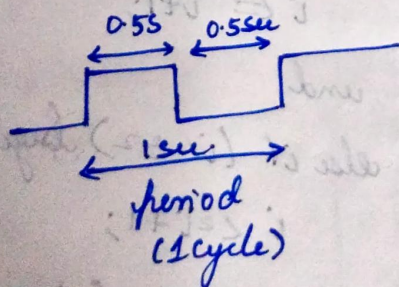 0.5s 0.5sec
1sec.
period
(1cycle)